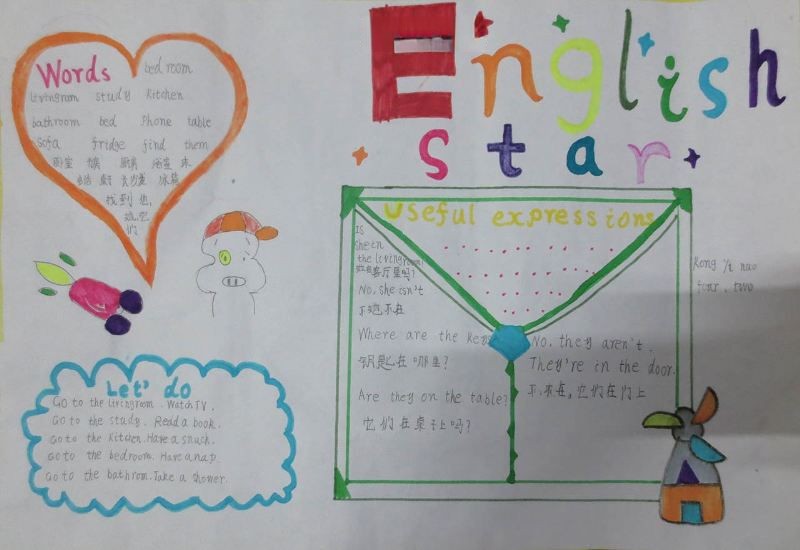 English
star
Words bedroom
livingroom study Kitchen
bathroom bed Phone table
Sofa fridge find them
卧室 书房 厨房 浴室 床
电话 桌子 沙发 冰箱
找到 他,
她,它
们
Useful expressions
Is
she in
the livingroom?
她在客厅里吗?
No, she isn't
不她不在
Where are the keys
钥匙在哪里?
Are they on the table?
它们在桌子上吗?
No, they aren't.
They're in the door.
不,不在,它们在门上
four, two
Let' do
Go to the livingroom. Watch TV.
Go to the study. Read a book.
Go to the Kitchen. Have a snack.
Go to the bedroom. Have a nap.
Go to the bathrom. Take a shower.